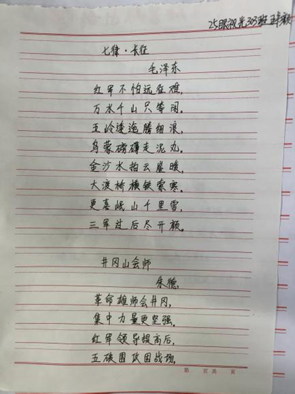 25眼视光303班
七律·长征
毛泽东
红军不怕远征难,
万水千山只等闲。
五岭逶迤腾细浪,
乌蒙磅礴走泥丸。
金沙水拍云崖暖,
大渡桥横铁索寒。
更喜岷山千里雪,
三军过后尽开颜。
井冈山会师
朱德
革命雄师会井冈,
集中力量更坚强。
红军领导提高后,
五破围攻固战场。
第 页 共 页